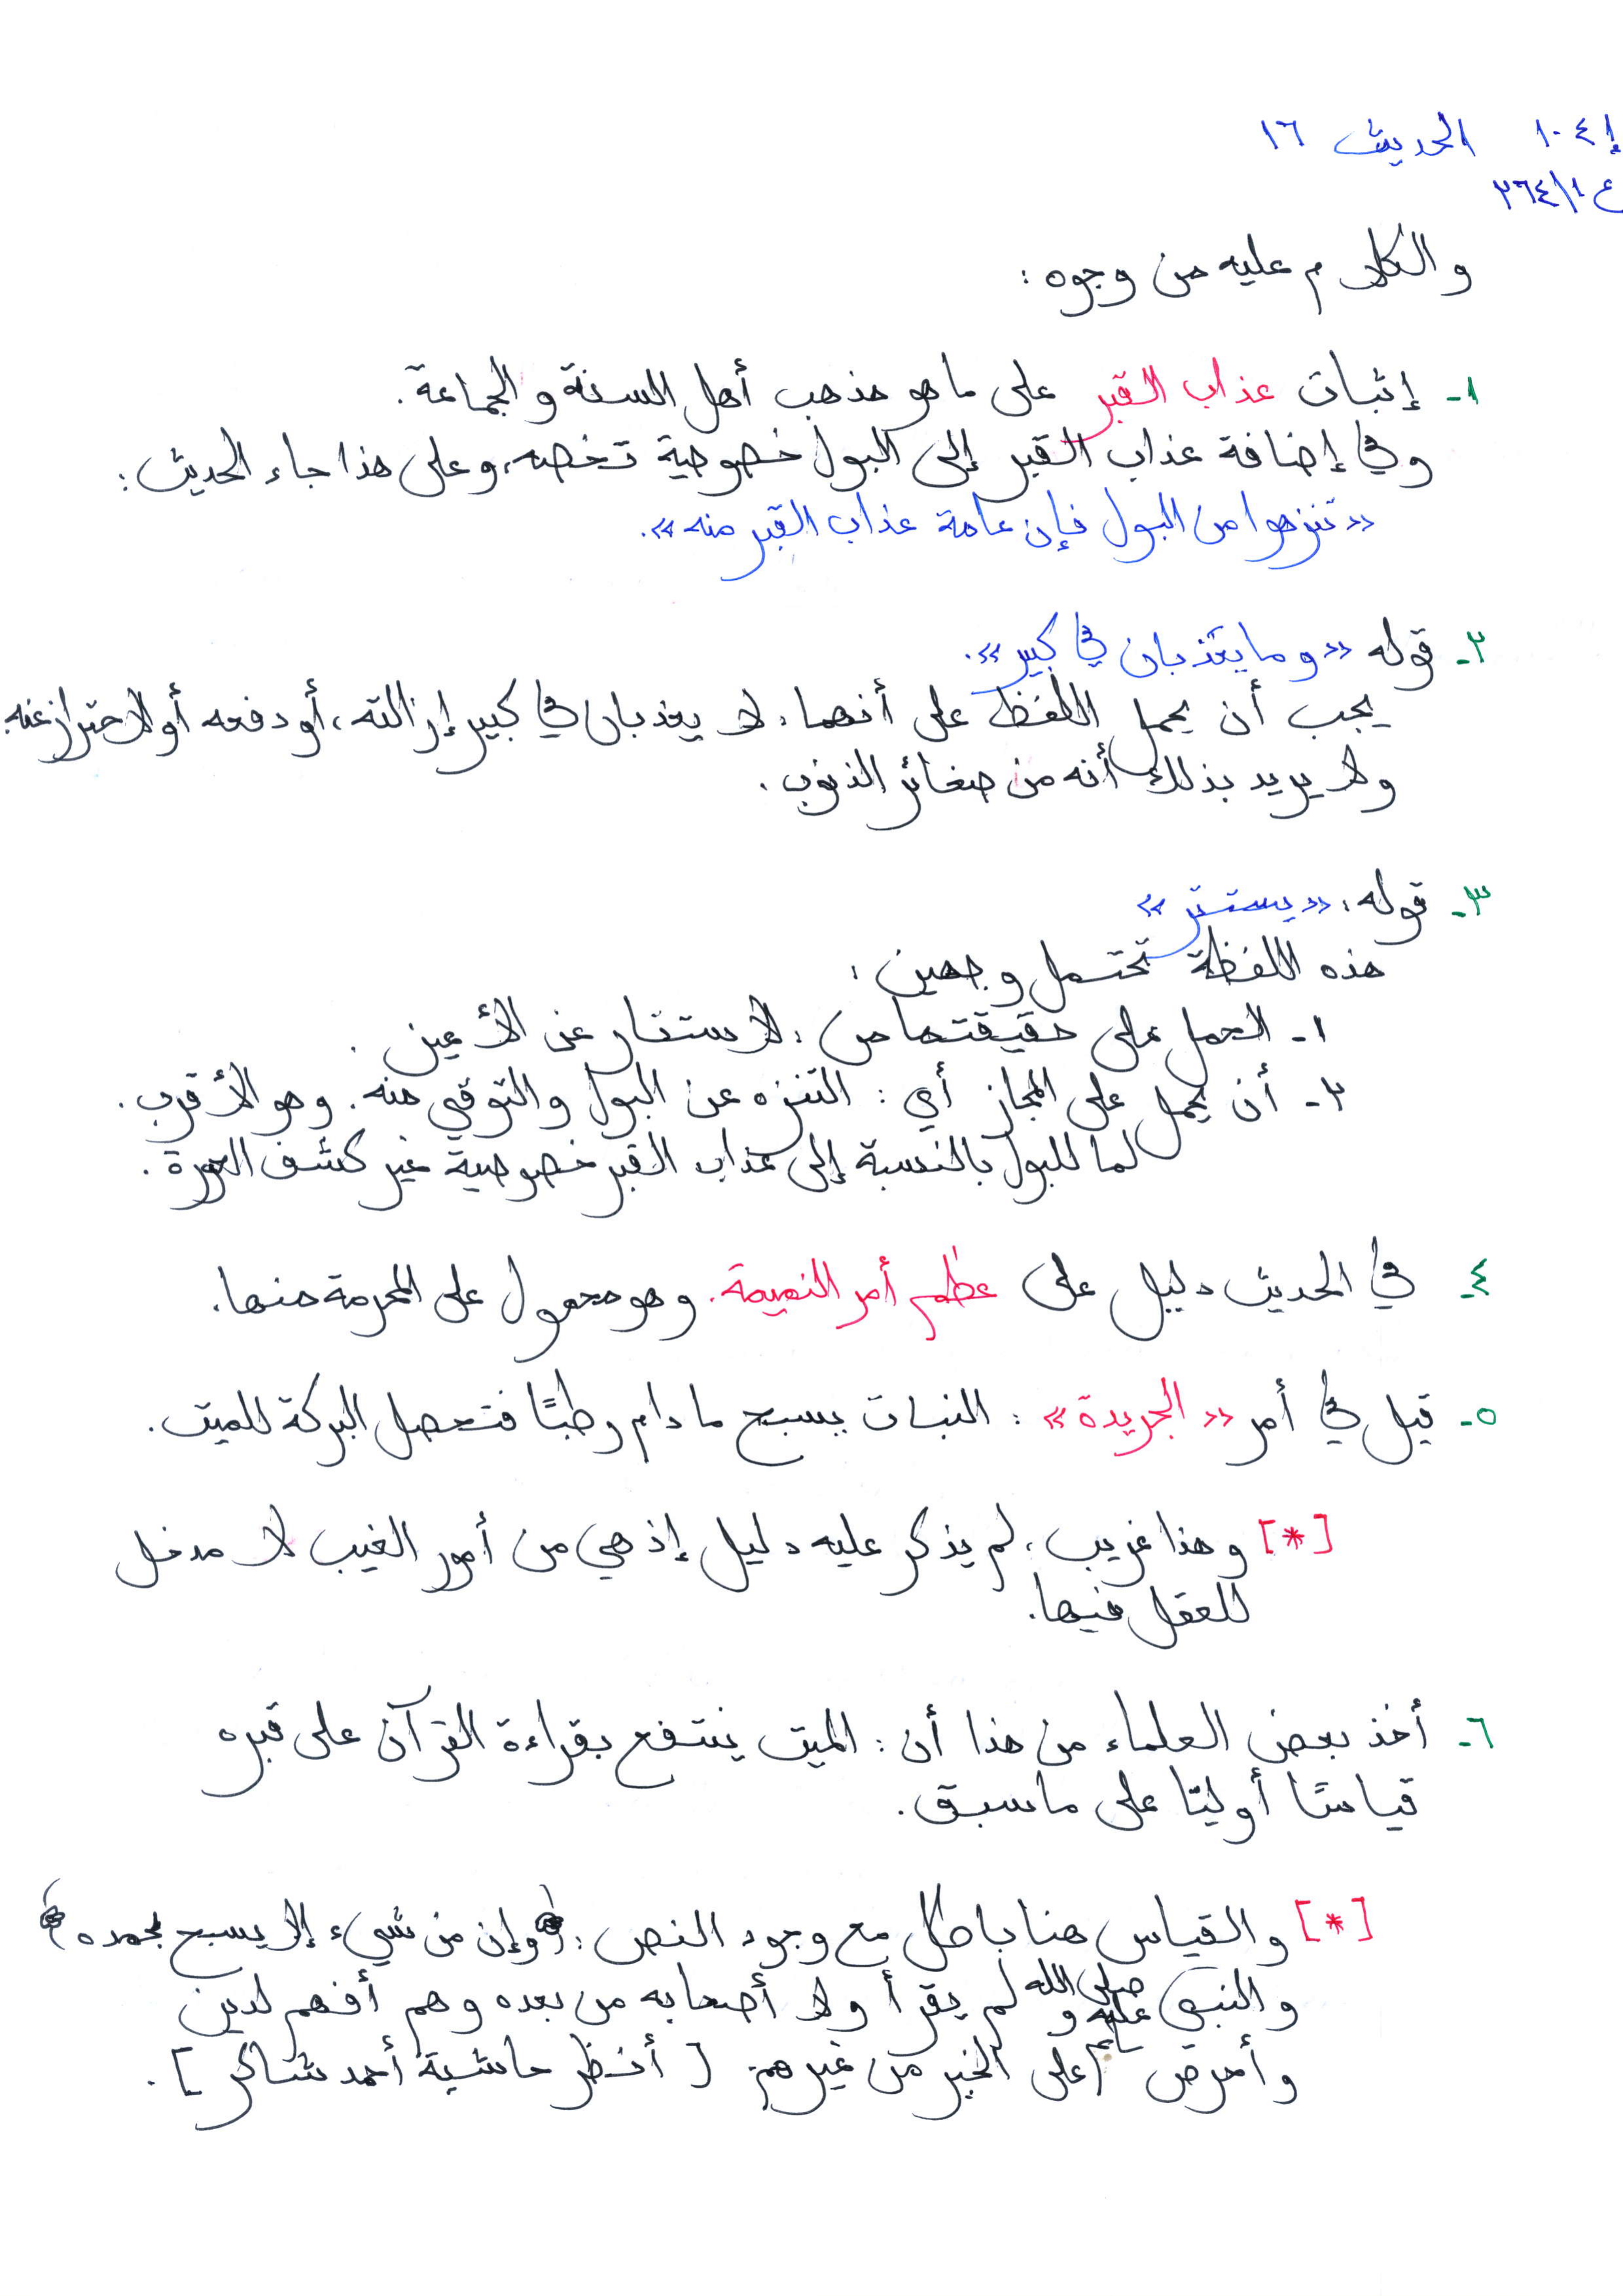 إ ١٠٤ الحديث ١٦
ع ٢٦٤/١
والكلام عليه من وجوه :
١- إثبات عذاب القبر على ما هو مذهب أهل السنة والجماعة.
وفي إضافة عذاب القبر إلى البول خصوصية تخصه، وعلى هذا جاء الحديث :
«تنزهوا من البول فإن عامة عذاب القبر منه».
٢- قوله «وما يعذبان في كبير».
يجب أن يحمل اللفظ على أنهما، لا يعذبان في كبير إزالته، أو دفعه أو الاحتراز عنه.
ولا يريد بذلك أنه من صغائر الذنوب.
٣- قوله: «يستتر»
هذه اللفظة تحتمل وجهين :
١- الحمل على حقيقتها من : الاستتار عن الأعين.
٢- أن يحمل على المجاز أي : التنزه عن البول والتوقي منه. وهو الأقرب.
لما للبول بالنسبة إلى عذاب القبر خصوصية غير كشف العورة.
٤- في الحديث دليل على عظم أمر النميمة. وهو محمول على المحرمة منها.
٥- قيل في أمر «الجريدة» : النبات يسبح ما دام رطبًا فتحصل البركة للميت.
[*] وهذا غريب، لم يذكر عليه دليل إذ هي من أمور الغيب لا مدخل
للعقل فيها.
٦- أخذ بعض العلماء من هذا أن : الميت ينتفع بقراءة القرآن على قبره
قياسًا أوليًا على ما سبق.
[*] والقياس هنا باطل مع وجود النص : ﴿وإن من شيء إلا يسبح بحمده﴾
والنبي صلى الله عليه وسلم لم يقرأ ولا أصحابه من بعده وهم أفهم لدين
وأحرص على الخير من غيرهم. [أنظر حاشية أحمد شاكر].